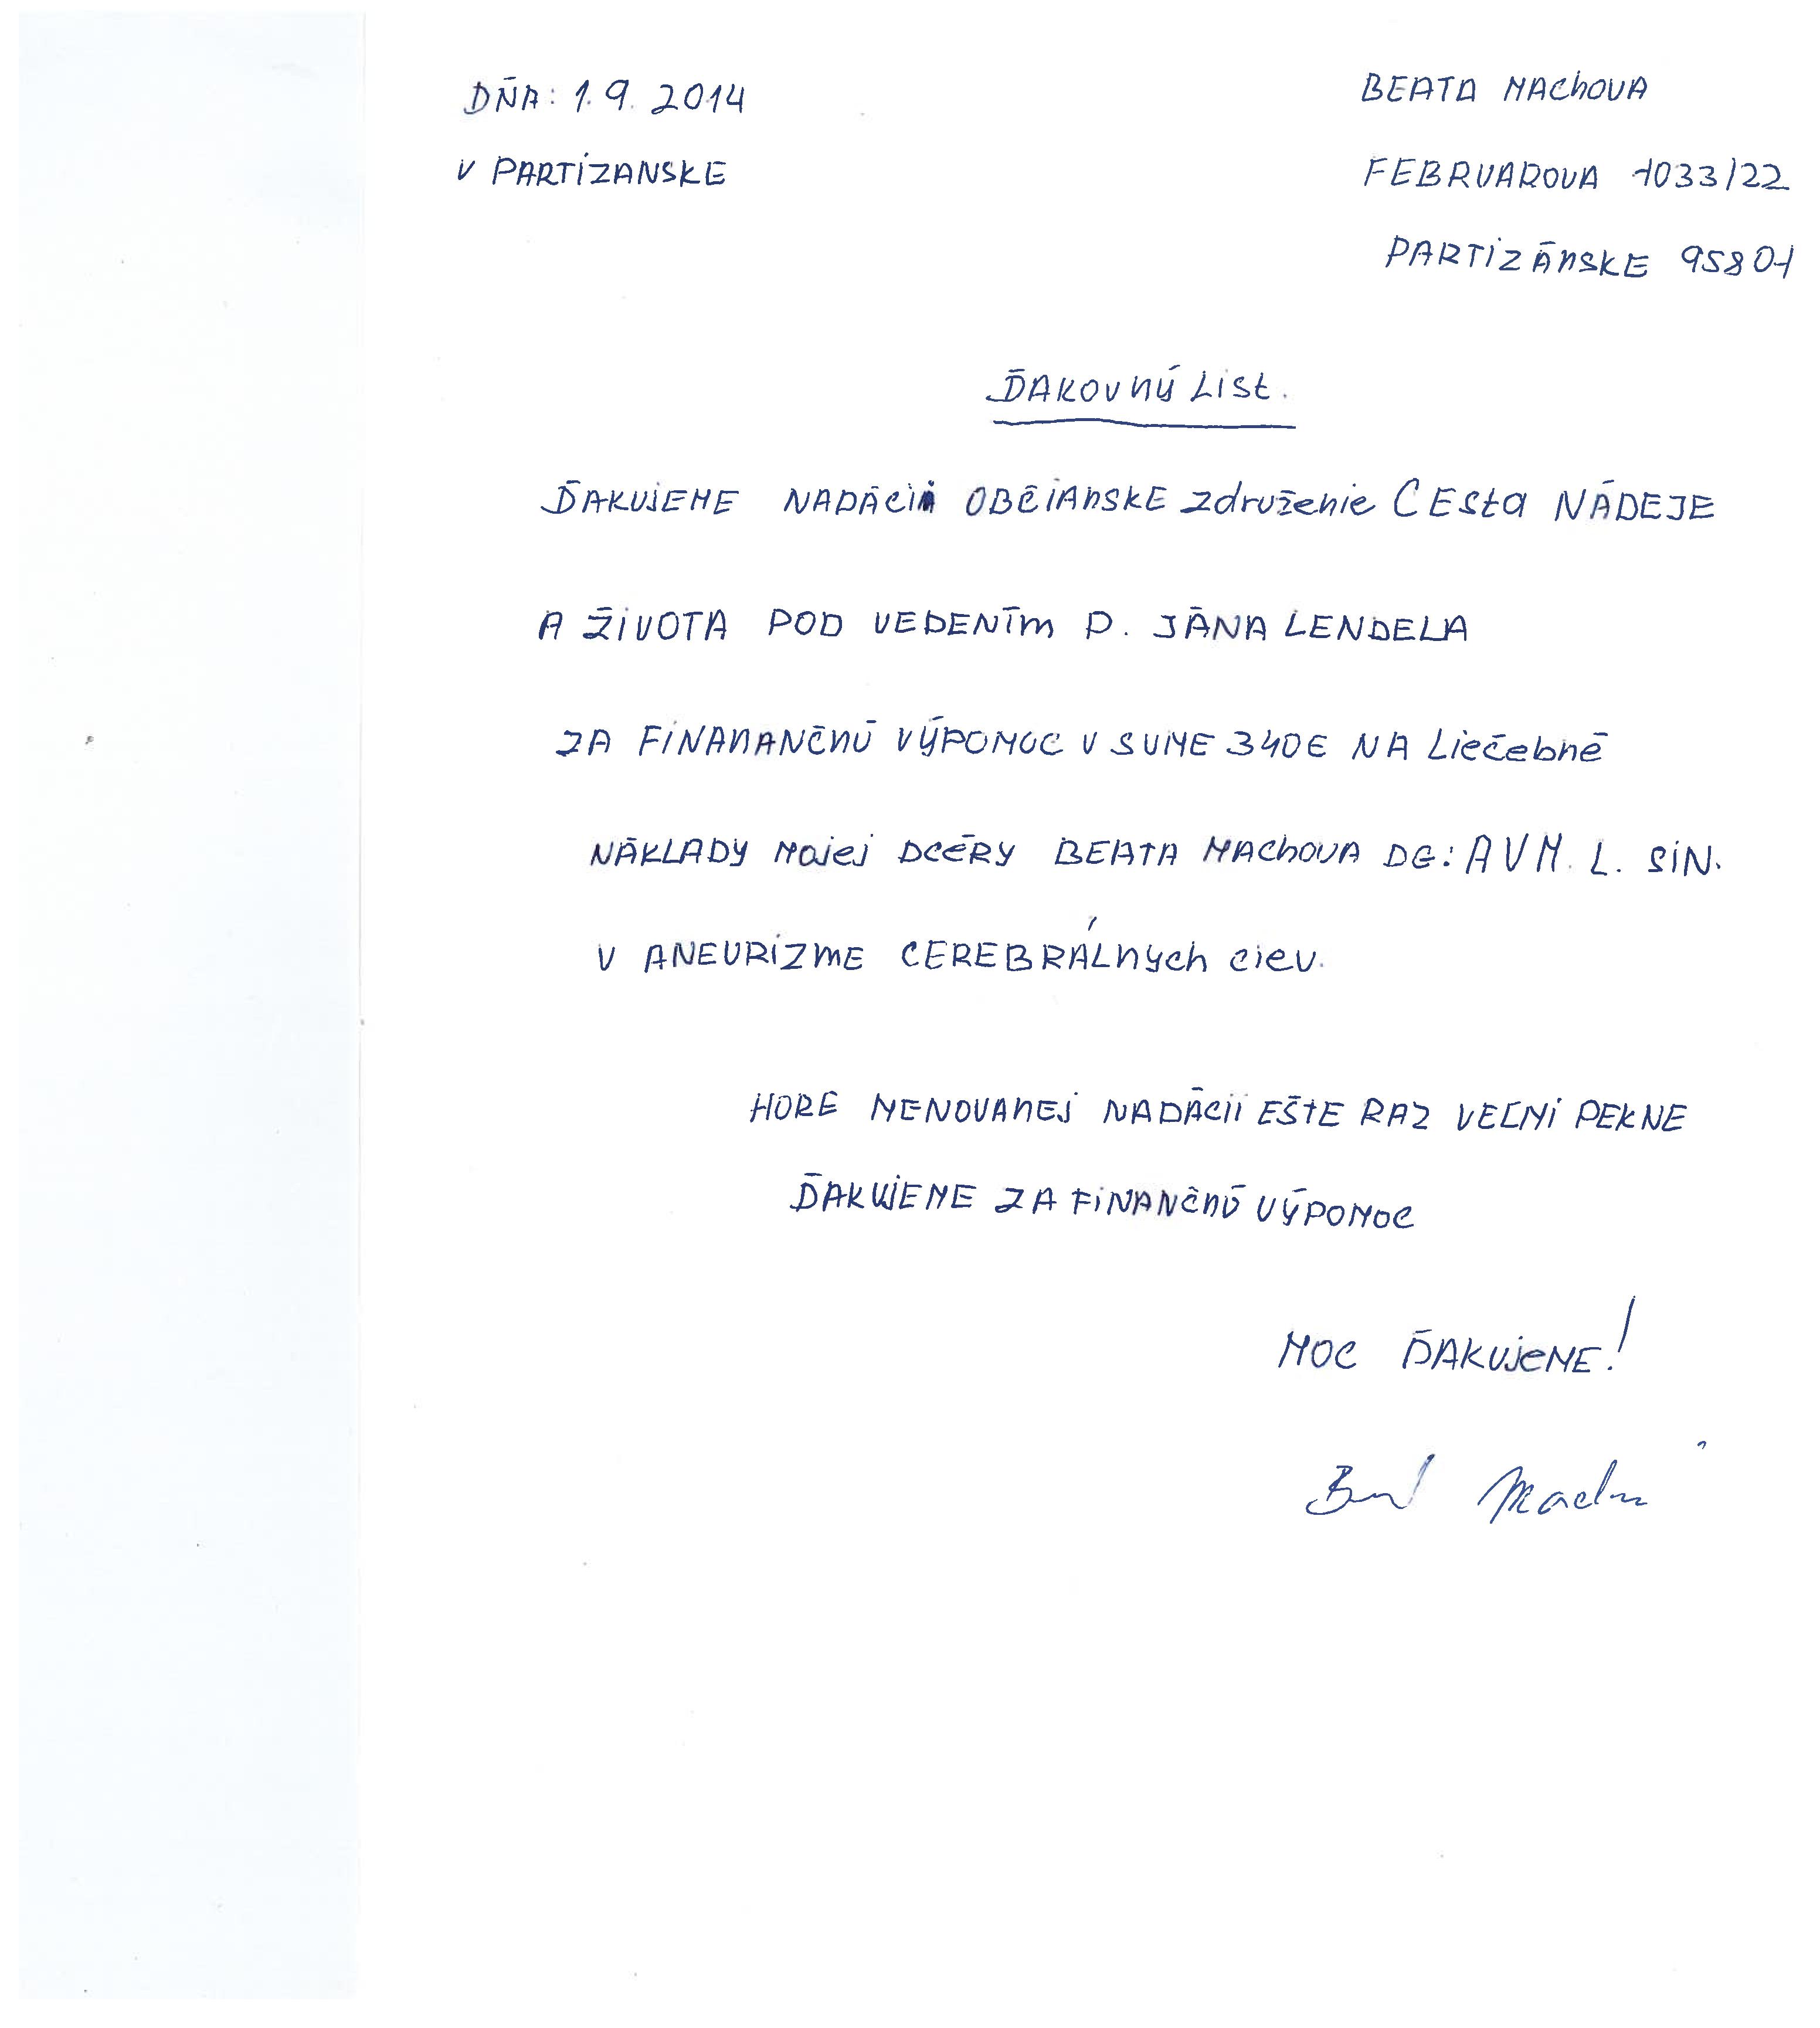 DŇA: 1.9. 2014
V PARTIZANSKE
BEATA MACHOVA
FEBRUAROVA 1033/22
PARTIZÁNSKE 95801
ĎAKOVNÝ LIST.
ĎAKUJEME NADÁCII OBČIANSKE združenie CESta NÁDEJE
A ŽIVOTA POD VEDENÍM P. JÁNA LENDELA
ZA FINANANČNÚ VÝPOMOC V SUME 340€ NA Liečebné
NÁKLADY MOJEJ DCÉRY BEATA MACHOVA DG: AVM. L. SIN.
V ANEURIZME CEREBRÁLNYCH CIEV.
HORE MENOVANEJ NADÁCII EŠTE RAZ VEĽMI PEKNE
ĎAKUJEME ZA FINANČNÚ VÝPOMOC
MOC ĎAKUJEME!